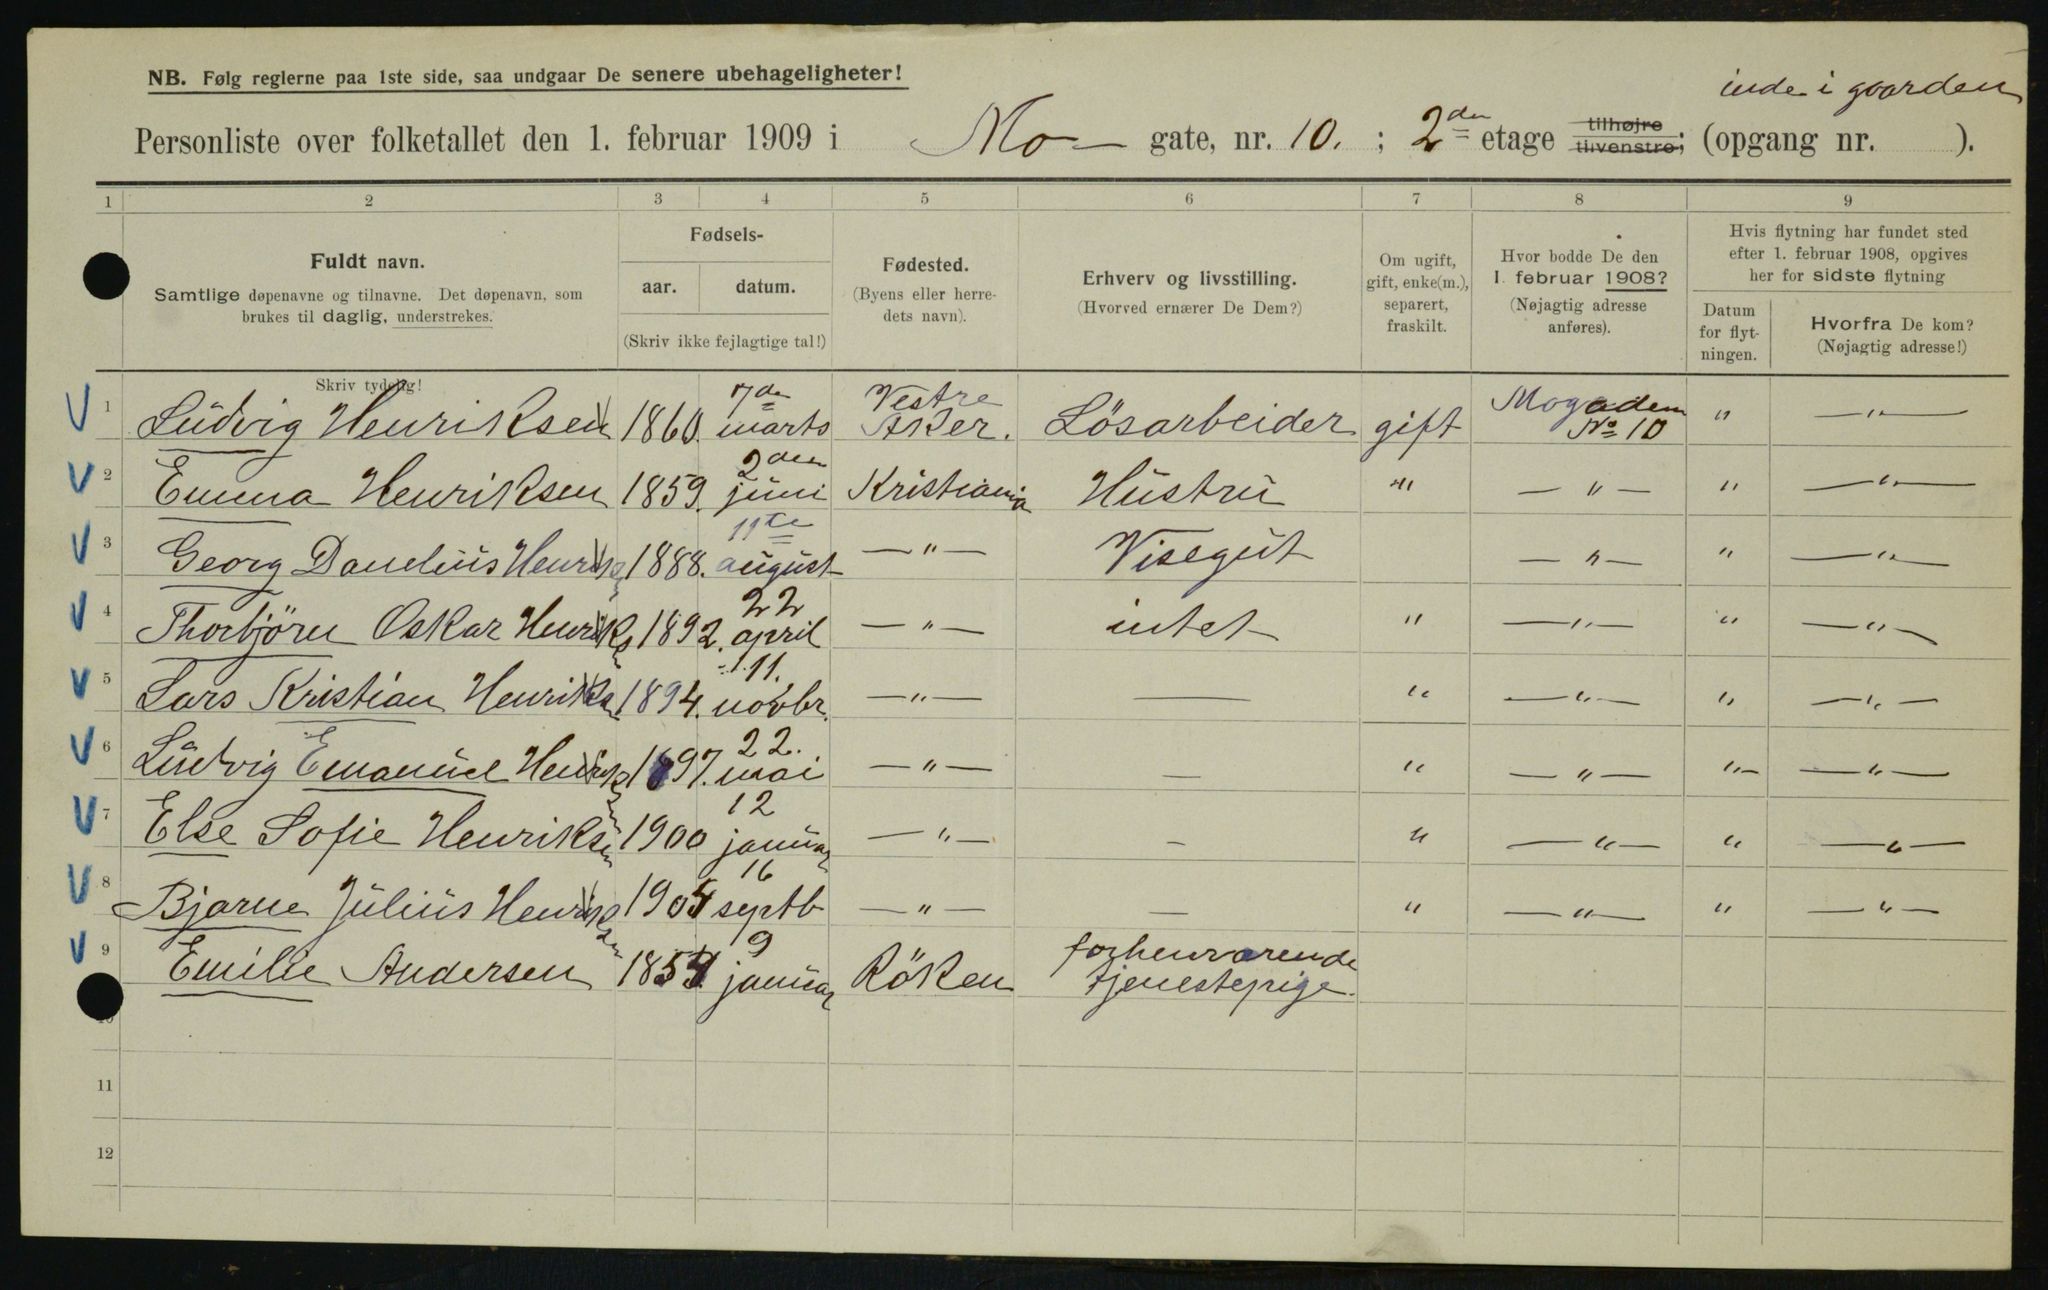 NB. Følg reglerne paa 1ste side, saa undgaar De senere ubehageligheter!
inde i gaarden
Personliste over folketallet den 1. februar 1909 i Mo- gate, nr. 10. ; 2den etage tilhøjre tilvenstre; (opgang nr. ).
1 2 3 4 5 6 7 8 9
Fuldt navn.
Samtlige døpenavne og tilnavne. Det døpenavn, som
brukes til daglig, understrekes.
Skriv tydelig!
Fødsels-
aar. datum.
(Skriv ikke fejlagtige tal!)
Fødested.
(Byens eller herre-
dets navn).
Erhverv og livsstilling.
(Hvorved ernærer De Dem?)
Om ugift,
gift, enke(m.),
separert,
fraskilt.
Hvor bodde De den
1. februar 1908?
(Nøjagtig adresse
anføres).
Hvis flytning har fundet sted
efter 1. februar 1908, opgives
her for sidste flytning
Datum
for flyt-
ningen.
Hvorfra De kom?
(Nøjagtig adresse!)
1 Ludvig Henriksen 1860. 7de marts Vestre Aker. Lösarbeider gift Mogaden No 10 " —"—
2 Emma Henriksen 1859. 2den juni Kristiania Hustru " —"— " —"—
3 Georg Danelius Henriksen 1888. 11te august —"— Visegut —"— " —"—
4 Thorbjörn Oskar Henriksen 1892. 22 april —"— intet " —"— " —"—
5 Lars Kristian Henriksen 1894. 11. novbr. —"— — " —"— " —"—
6 Ludvig Emanuel Henriksen 1897. 22. mai —"— — " —"— " —"—
7 Else Sofie Henriksen 1900 12 januar —"— — " —"— " —"—
8 Bjarne Julius Henriksen 1904 16 septb —"— — " —"— " —"—
9 Emilie Andersen 1854 9 januar Röken forhenværende tjenestepige.
10
11
12